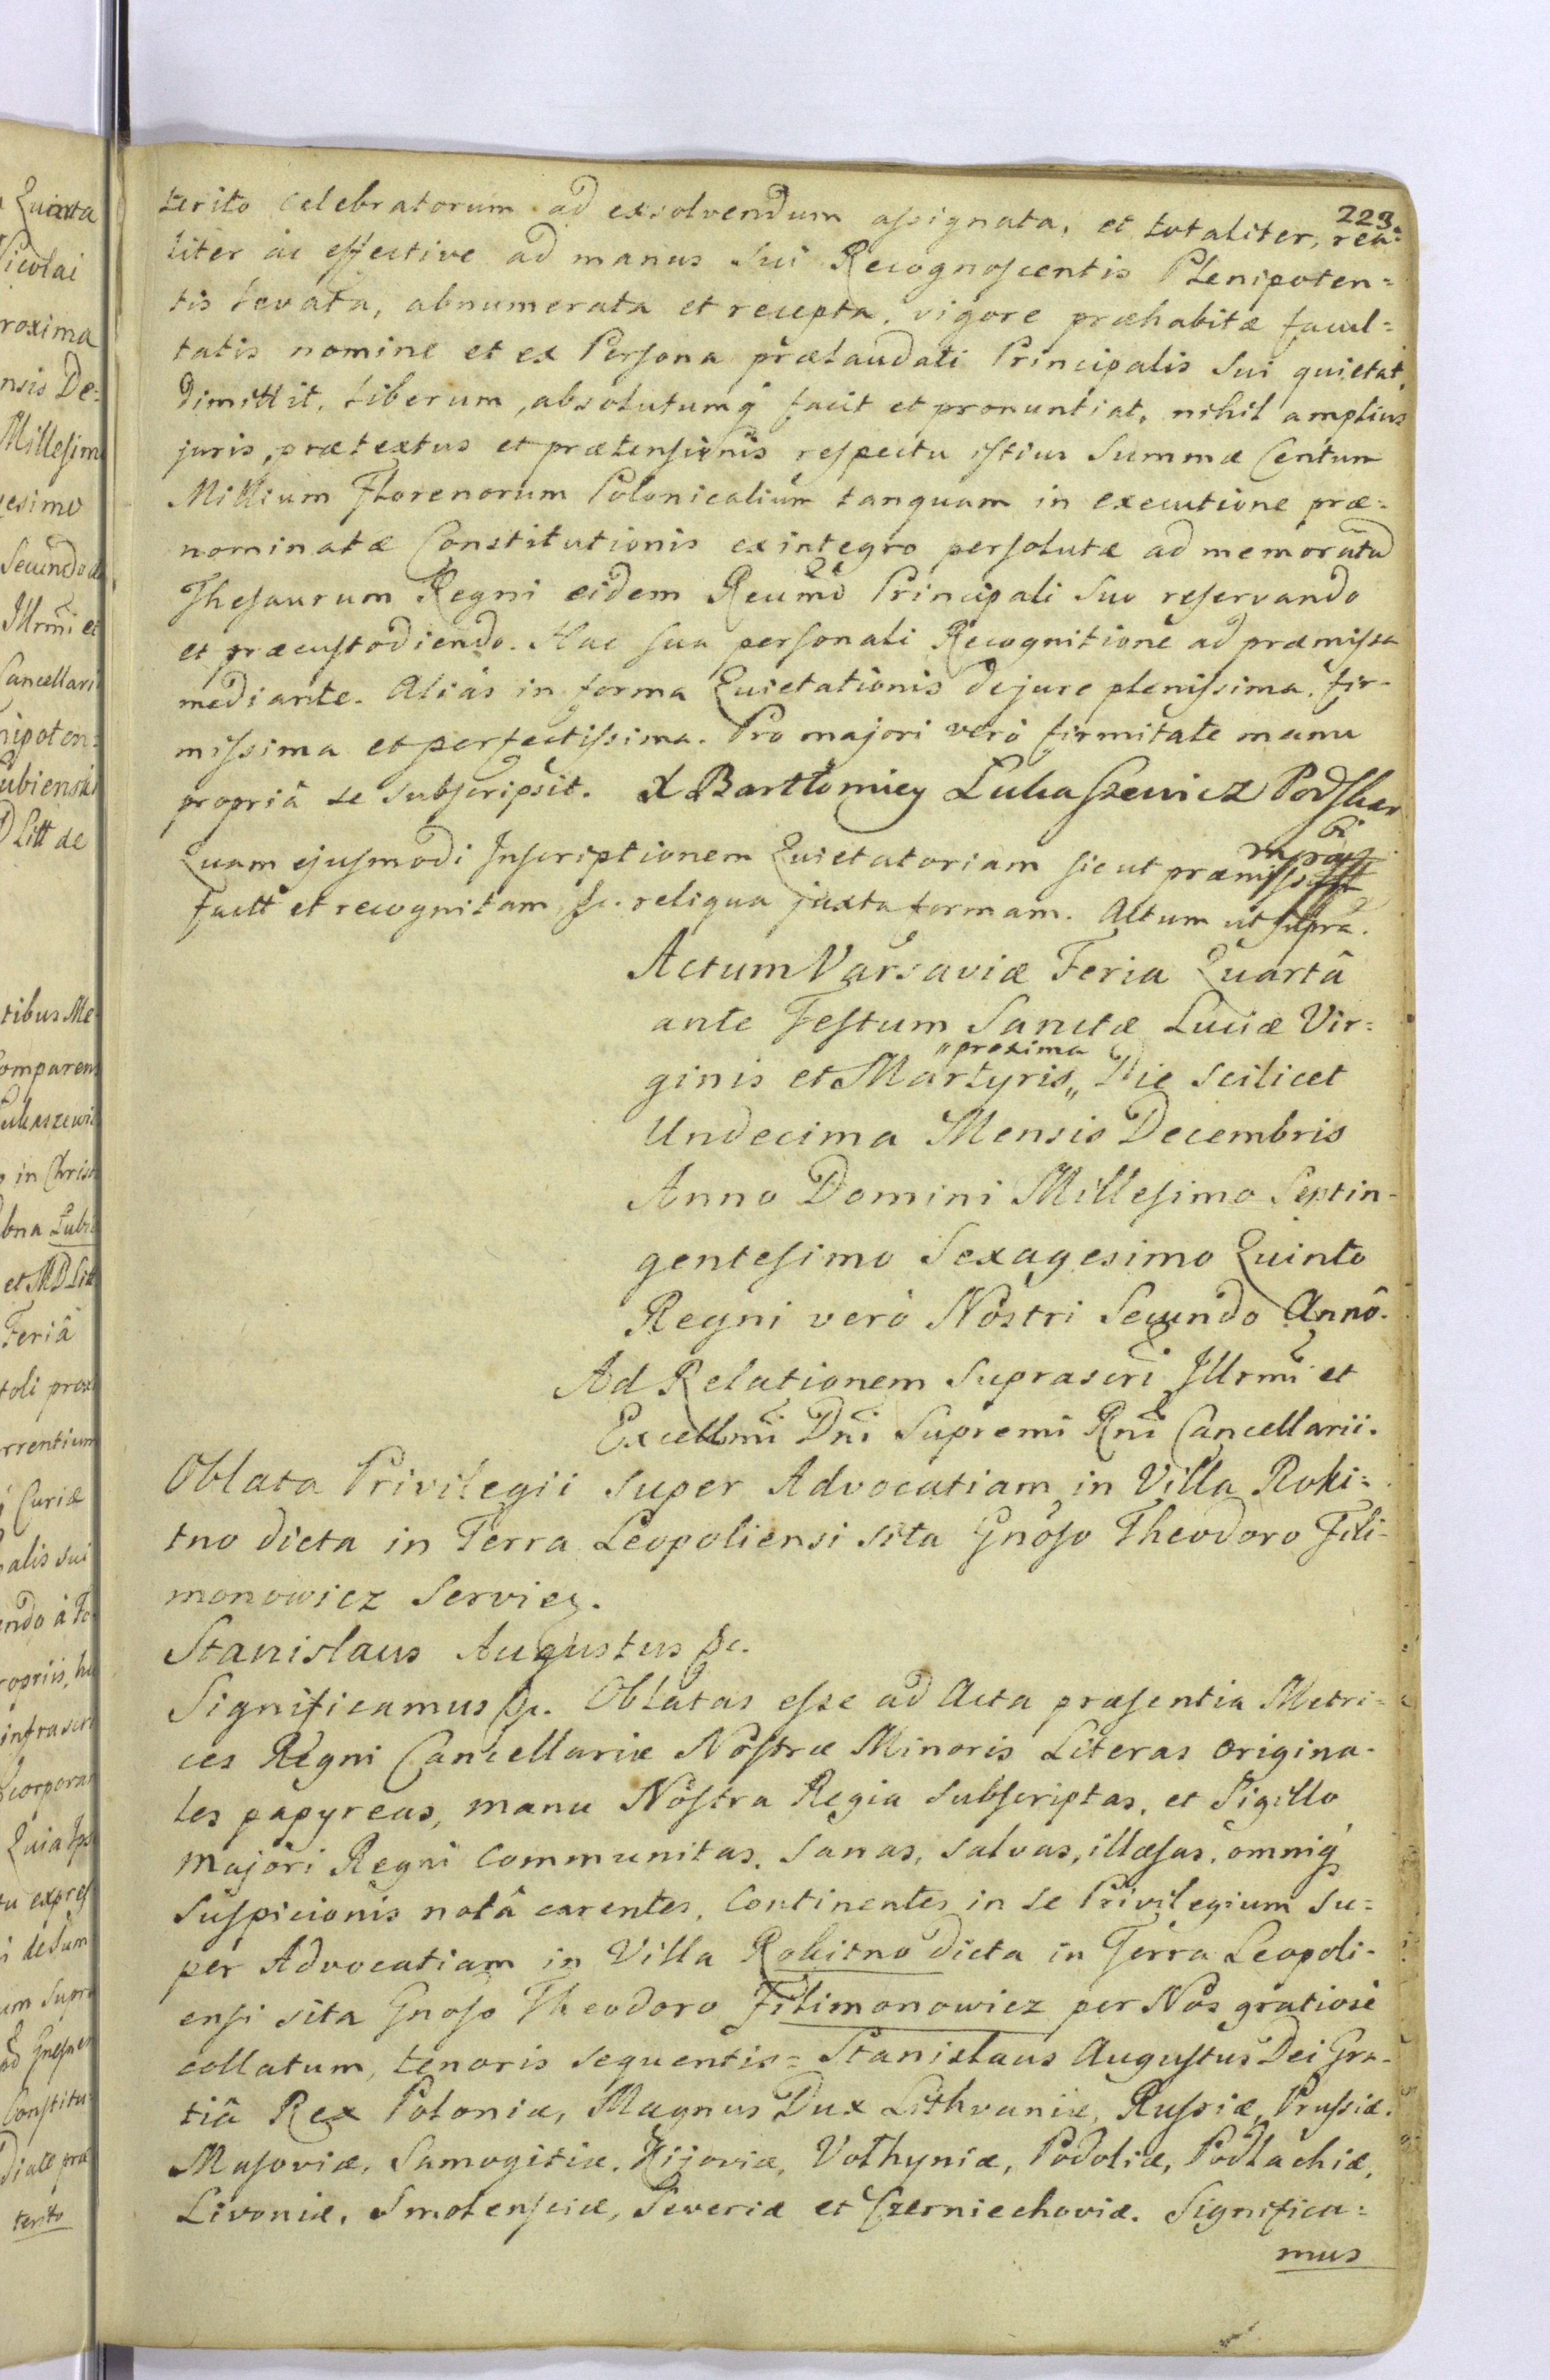 223.
terito celebratorum ad exsolvendum assignata, et totaliter, rea=
liter ac effective ad manus sui Recognoscentis Plenipoten=
tis levata, abnumerata et recepta, vigore præhabitæ facul=
tatis nomine et ex Persona prælaudati Principalis sui quietat,
dimittit, liberum, absolutumq facit et pronuntiat, nihil amplius
juris, prætextus et prætensionis respectu istius Summæ Centum
Millium Florenorum Polonicalium tanquam in executione præ=
nominatæ Constitutionis ex integro persolutæ ad memoratũ
Thesaurum Regni eidem Reumo Principali Suo reservando
et præcustodiendo. Hac sua personali Recognitione ad præmissa
mediante. Aliàs in forma Quietationis de jure plenissima, fir-
missima et perfectissima. Pro majori verò firmitate manu
propriâ se subscripsit. X Bartłomiey Lukaszewicz Podskar
bi
Quam ejusmodi Inscriptionem Quietatoriam sic ut præmissum
factt et recognitam &c. reliqua juxta formam. Actum ut supra.
Actum Varsaviæ Feria Quartâ
ante Festum Sanctæ Luciæ Vir=
ginis et Martyris „proxima„ Die scilicet
Undecima Mensis Decembris
Anno Domini Millesimo Septin-
gentesimo Sexagesimo Quinto
Regni verò Nostri Secundo Annô.
Ad Relationem Suprascri Illrmi et
Excellmi Dni Supremi Rni Cancellarii.
Oblata Privilegii super Advocatiam in Villa Roki=
tno dicta in Terra Leopoliensi sita Gnoso Theodoro Fili-
monowicz serviens.
Stanislaus Augustus &c.
Significamus &c. Oblatas esse ad Acta præsentia Metri=
ces Regni Cancellariæ Nostræ Minoris Literas origina-
les papyreas, manu Nostra Regia subscriptas, et Sigillo
majori Regni communitas, sanas, salvas, illæsas, omniq
suspicionis notâ carentes, continentes in se Privilegium su=
per Advocatiam in Villa Rokitno dicta in Terra Leopoli-
ensi sita Gnoso Theodoro Filimonowicz per Nos gratiosè
collatum, tenoris sequentis= Stanislaus Augustus Dei Gra-
tiâ Rex Poloniæ, Magnus Dux Lithvaniæ, Russiæ, Prussiæ,
Masoviæ, Samogitiæ, Kijoviæ, Volhyniæ, Podoliæ, Podlachiæ,
Livoniæ, Smolensciæ, Severiæ et Czerniechoviæ. Significa=
mus